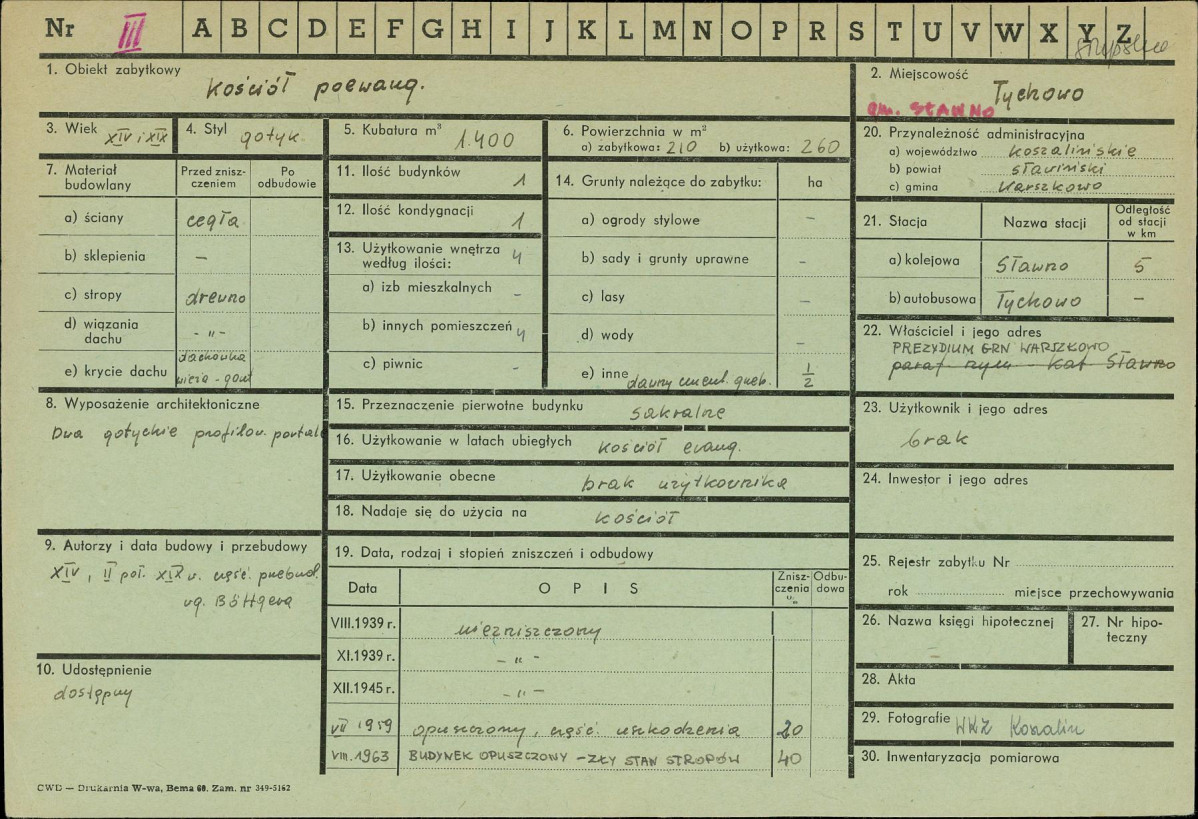 Nr III A B C D E F G H I J K L M N O P R S T U V W X Y Z
1. Obiekt zabytkowy
kościół poewang.
2. Miejscowość
Tychowo
gm. SŁAWNO
3. Wiek XIV i XIX
4. Styl gotyk.
5. Kubatura m³ 1.400
6. Powierzchnia w m²
a) zabytkowa: 210 b) użytkowa: 260
20. Przynależność administracyjna
a) województwo koszalińskie
b) powiat sławiński
c) gmina Warszkowo
7. Materiał budowlany
Przed znisz-
czeniem
Po
odbudowie
a) ściany cegła
b) sklepienia –
c) stropy drewno
d) wiązania
dachu - „ -
e) krycie dachu dachówka
wieża - gont
11. Ilość budynków 1
12. Ilość kondygnacji 1
13. Użytkowanie wnętrza
według ilości: 4
a) izb mieszkalnych –
b) innych pomieszczeń 4
c) piwnic –
14. Grunty należące do zabytku: ha
a) ogrody stylowe –
b) sady i grunty uprawne –
c) lasy –
d) wody –
e) inne dawny cment. grzeb. 1/2
21. Stacja
Nazwa stacji
Odległość
od stacji
w km
a) kolejowa Sławno 5
b) autobusowa Tychowo –
22. Właściciel i jego adres
PREZYDIUM GRN WARSZKOWO
paraf. rzym. - kat Sławno
8. Wyposażenie architektoniczne
Dwa gotyckie profilow. portale
15. Przeznaczenie pierwotne budynku sakralne
16. Użytkowanie w latach ubiegłych kościół ewang.
17. Użytkowanie obecne brak użytkownika
18. Nadaje się do użycia na kościół
23. Użytkownik i jego adres
brak
24. Inwestor i jego adres
9. Autorzy i data budowy i przebudowy
XIV, II poł. XIX w. część. przebud.
wg. Böttgera
10. Udostępnienie
dostępny
19. Data, rodzaj i stopień zniszczeń i odbudowy
Data
OPIS
Znisz-
czenia
%
Odbu-
dowa
VIII.1939 r. niezniszczony
XI.1939 r. – „ –
XII.1945 r. – „ –
VII 1959 opuszczony, część. uszkodzenia 20
VIII.1963 BUDYNEK OPUSZCZONY – ZŁY STAN STROPÓW 40
25. Rejestr zabytku Nr
rok miejsce przechowywania
26. Nazwa księgi hipotecznej
–
27. Nr hipo-
teczny
28. Akta
29. Fotografie WKZ Koszalin
30. Inwentaryzacja pomiarowa
CWD — Drukarnia W-wa, Bema 60. Zam. nr 349-5162